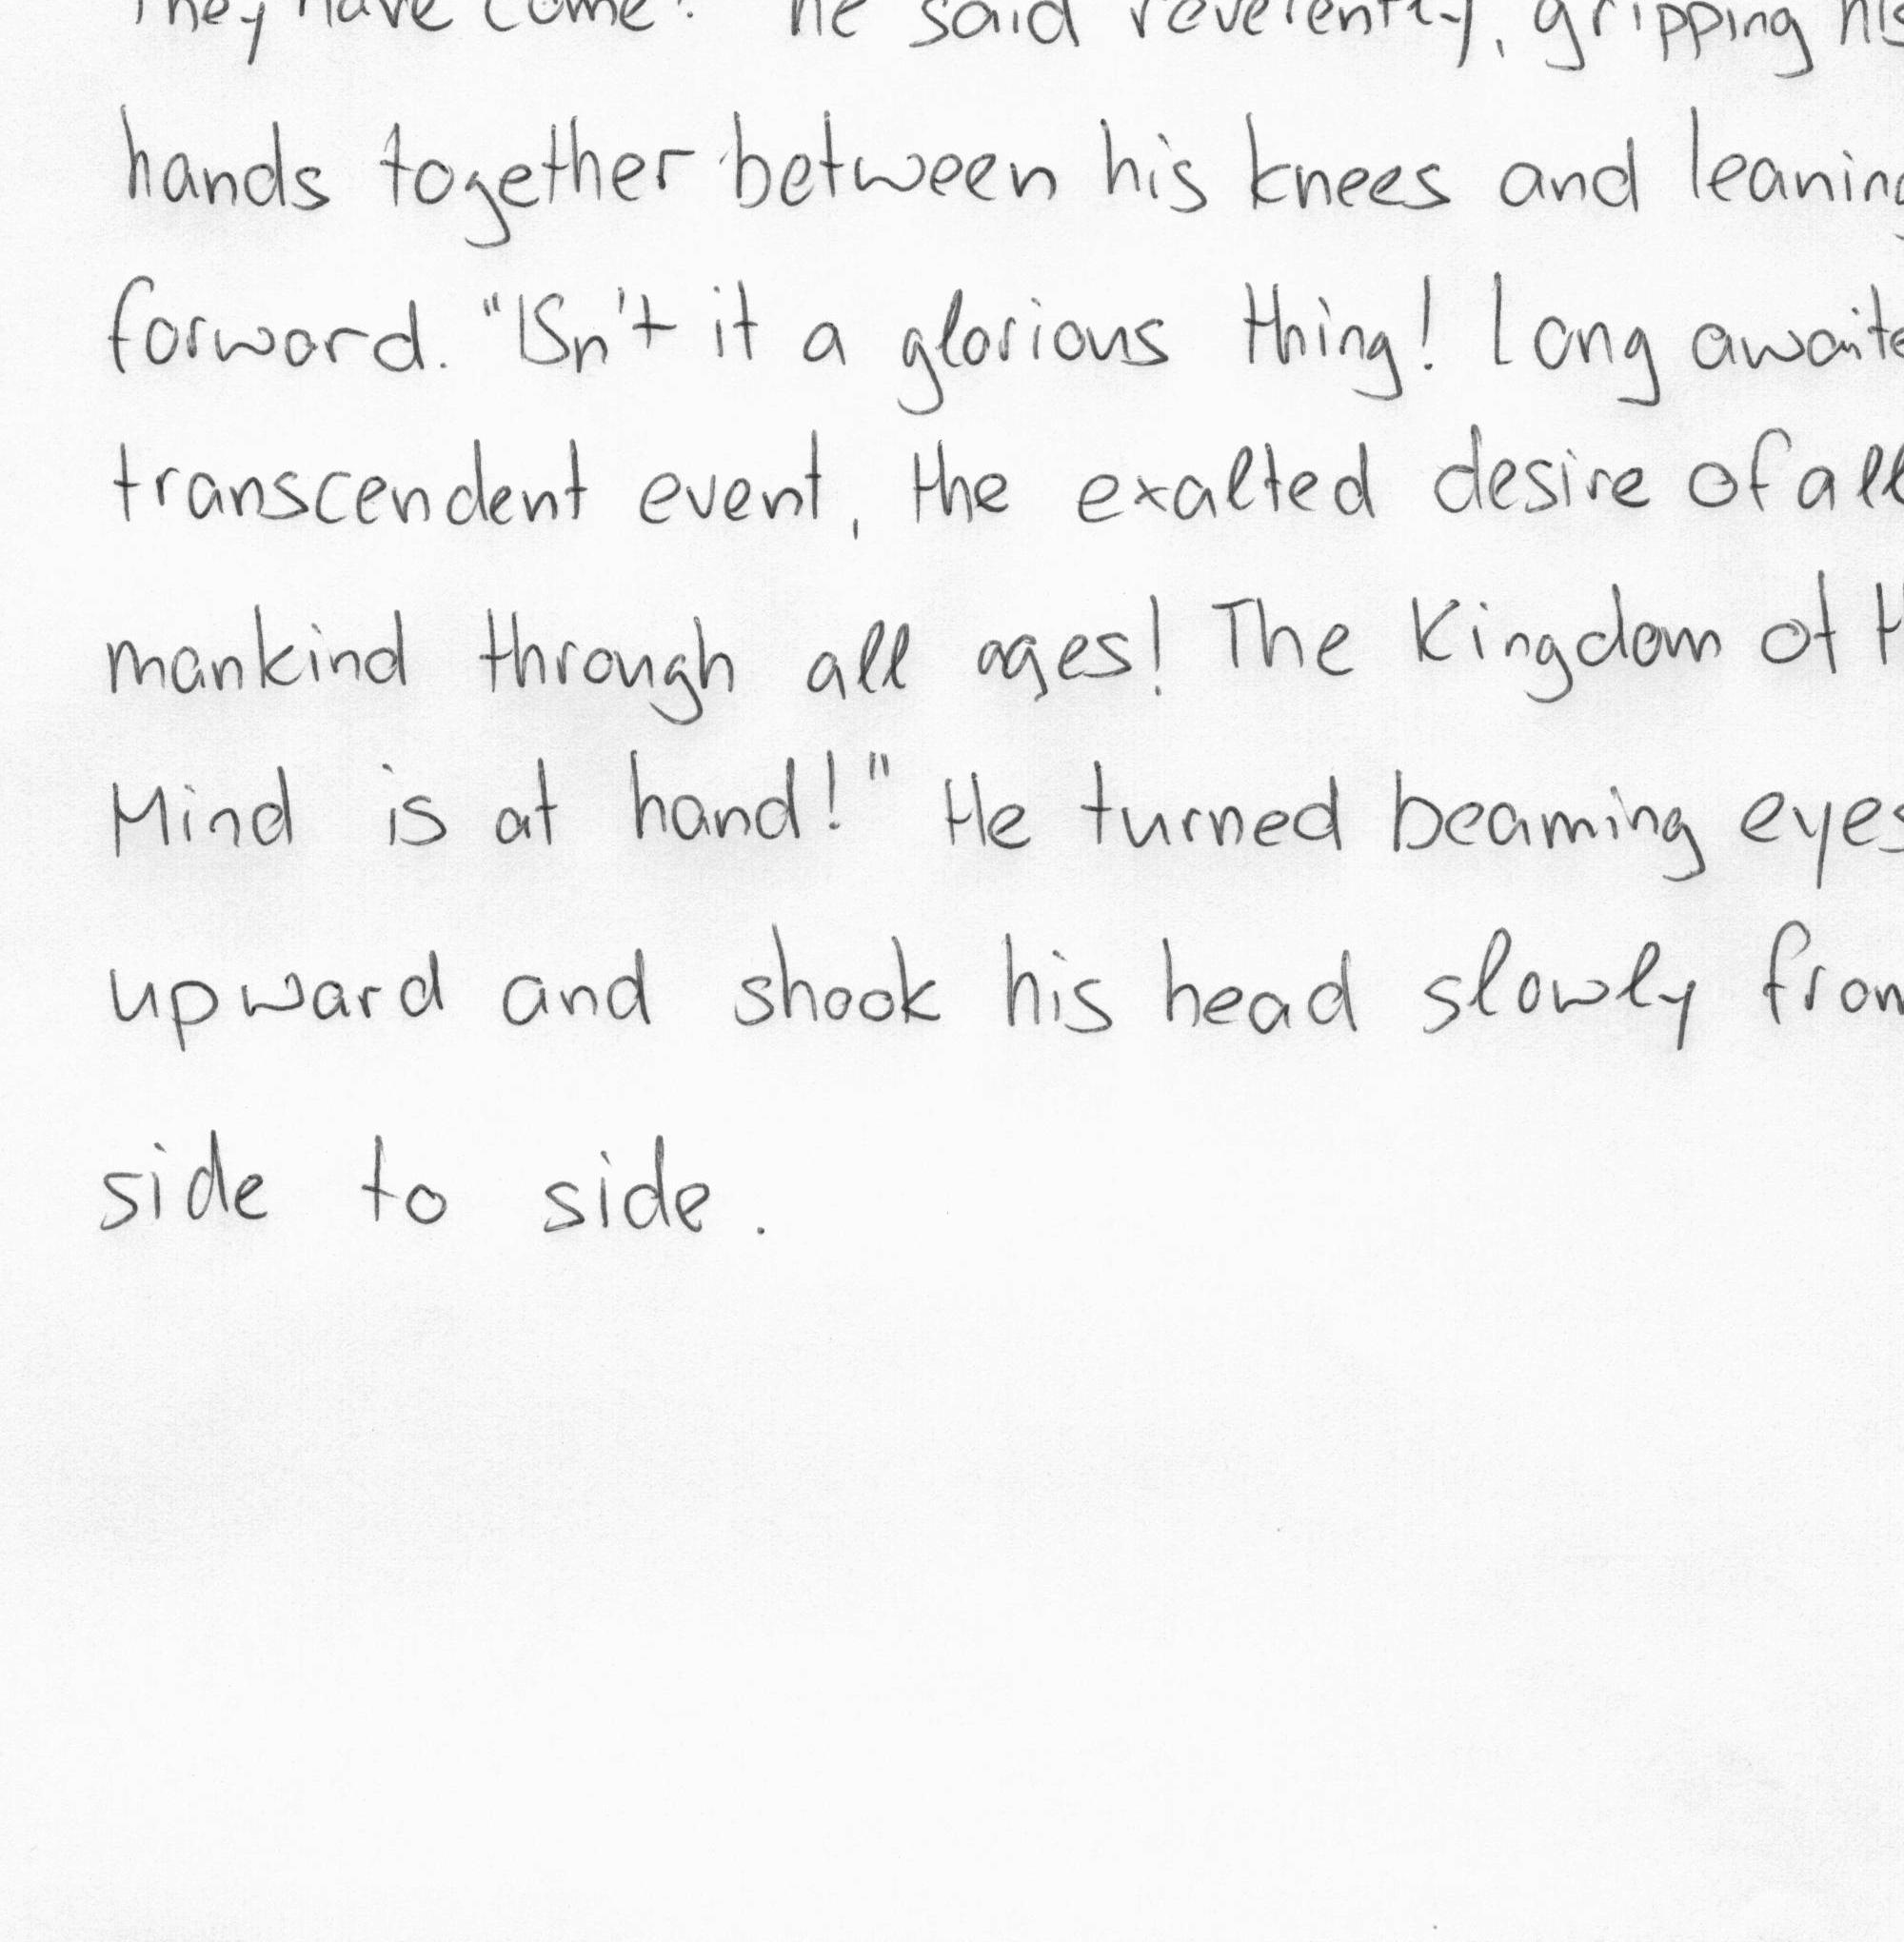 They have come!" he said reverently, gripping his
hands together between his knees and leaning
forward. "Isn't it a glorious thing! Long awaite
transcendent event, the exalted desire of all
mankind through all ages! The Kingdom of
Mind is at hand!" He turned beaming eyes
upward and shook his head slowly from
side to side.